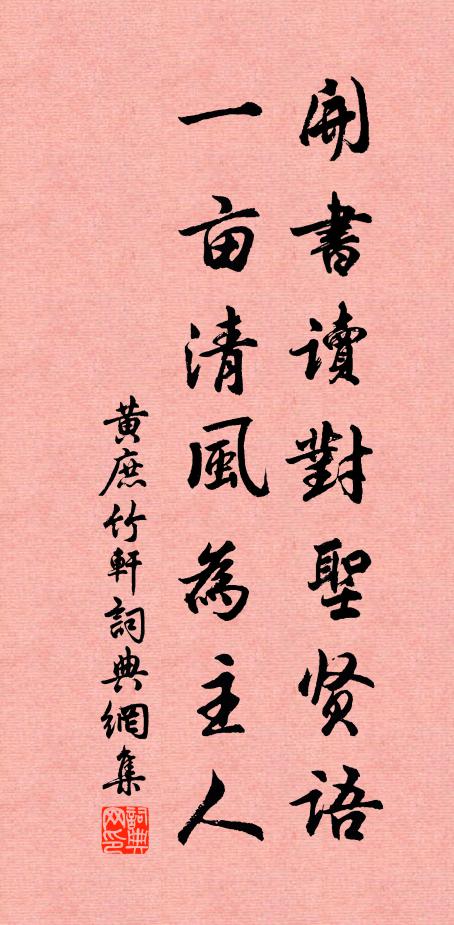 開書讀對聖贤語
一亩清風為主人
黄庶竹軒詞典網集
詞典网印